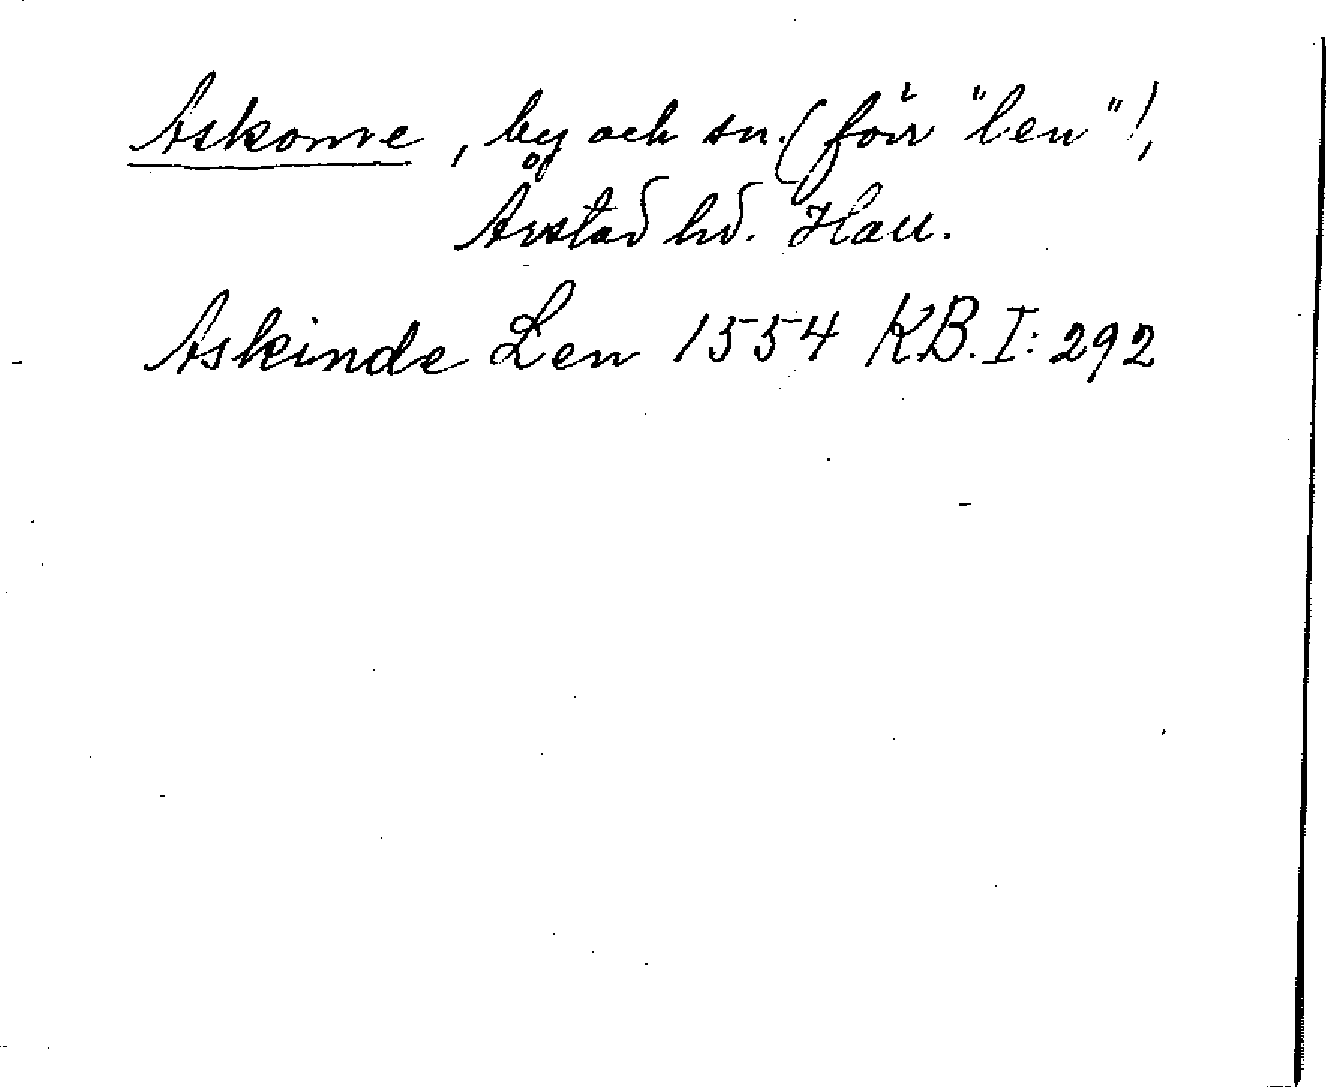 Askome, by och sn. (förr "len"),
Årstad hd. Hall.
Askinde Len 1554 KB. I: 292